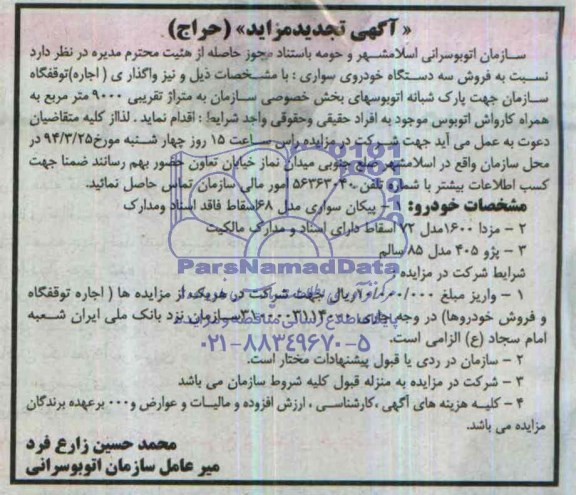 « آگهی تجدیدمزایده» (حراج)
سازمان اتوبوسرانی اسلامشهر و حومه باستناد مجوز حاصله از هئیت محترم مدیره در نظر دارد
نسبت به فروش سه دستگاه خودروی سواری : با مشخصات ذیل و نیز واگذار ی ( اجاره)توقفگاه
سازمان جهت پارک شبانه اتوبوسهای بخش خصوصی سازمان به متراژ تقریبی ۹۰۰۰ متر مربع به
همراه کارواش اتوبوس موجود به افراد حقیقی وحقوقی واجد شرایط : اقدام نماید . لذااز کلیه متقاضیان
دعوت به عمل می آید جهت شرکت در مزایده راس ساعت ۱۵ روز چهار شنبه مورخ۹۴/۳/۲۵ در
محل سازمان واقع در اسلامشهر ضلع جنوبی میدان نماز خیابان تعاون حضور بهم رسانند ضمنا جهت
کسب اطلاعات بیشتر با شماره تلفن ۵۶۳۶۳۰۴۰ امور مالی سازمان تماس حاصل نمائید.
مشخصات خودرو: ۱ – پیکان سواری مدل ۶۸اسقاط فاقد اسناد ومدارک
۲ – مزدا ۱۶۰۰مدل ۷۲ اسقاط دارای اسناد و مدارک مالکیت
۳ – پژو ۴۰۵ مدل ۸۵ سالم
ParsNamadData
شرایط شرکت در مزایده :
۱ – واریز مبلغ ریال جهت شرکت در هریک از مزایده ها ( اجاره توقفگاه
و فروش خودروها) در وجه جاری سازمان نزد بانک ملی ایران شعبه
امام سجاد (ع) الزامی است.
۰۲۱-۸۸۳۴۹۶۷۰-۵
۲ – سازمان در ردی یا قبول پیشنهادات مختار است.
۳ – شرکت در مزایده به منزله قبول کلیه شروط سازمان می باشد
۴ – کلیه هزینه های آگهی ،کارشناسی ، ارزش افزوده و مالیات و عوارض و۰۰۰ برعهده برندگان
مزایده می باشد.
محمد حسین زارع فرد
میر عامل سازمان اتوبوسرانی